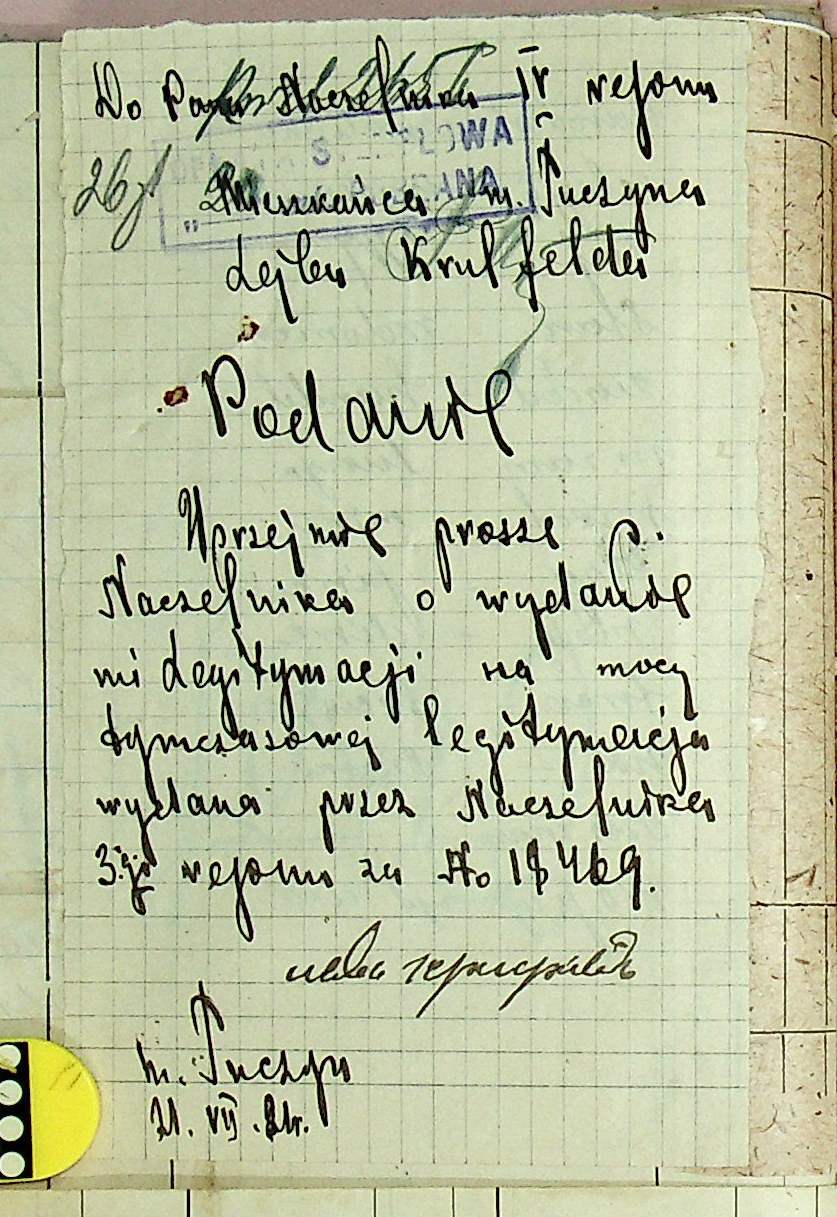 Do Pana Naczelnika IV rejonu
26/
OPŁATA STEMPLOWA
Mieszkańca m. Tuczyna
Lejba Krulfelda
Podanie
Uprzejmie prosze P.
Naczelnika o wydanie
mi Legitymacji na mocy
tymczasowej legitymacja
wydana przez Naczelnika
3-go rejonu za No 18469.
m. Tuczyn
21. VII. 21r.